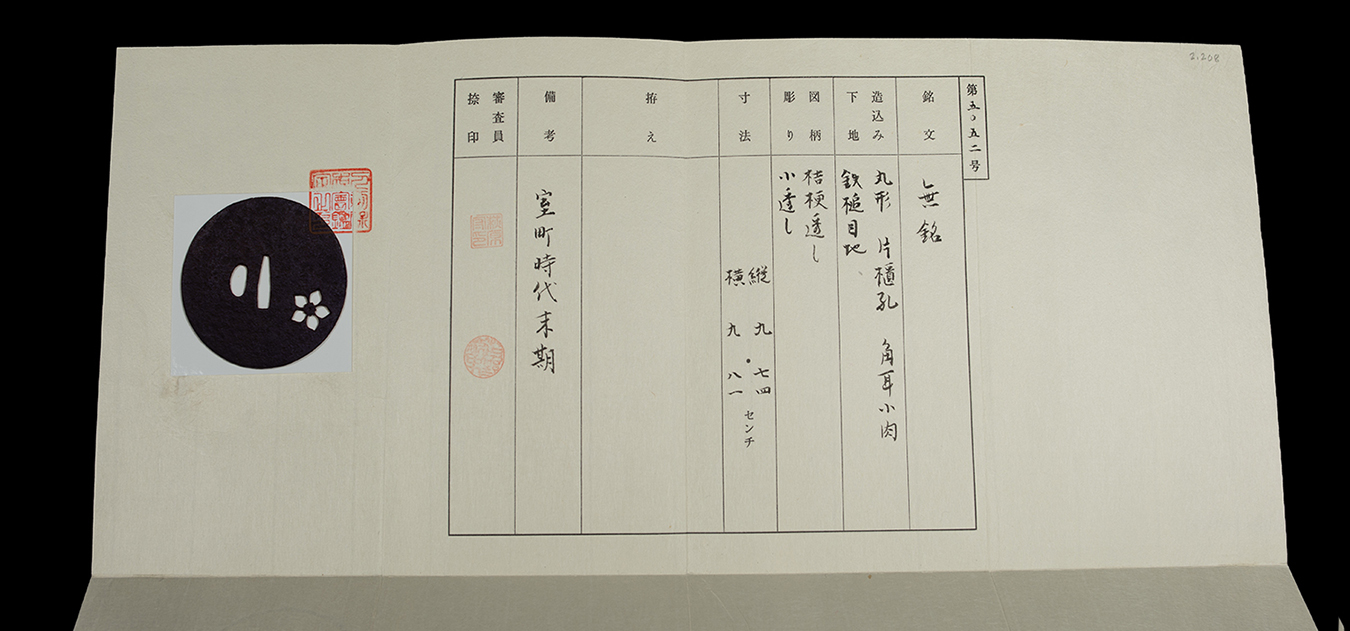 2.208
第五〇五二号
銘文
無銘
造込み
下地
丸形 片櫃孔 角耳小肉
鉄槌目地
図柄
彫り
桔梗透し
小透し
寸法
縦 九・七四
横 九・八一
センチ
拵え
備考
室町時代末期
審査員
捺印